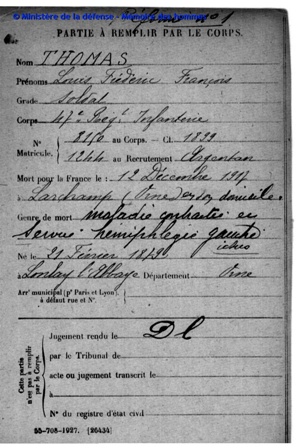 © Ministère de la défense - Mémoire des hommes
PARTIE À REMPLIR PAR LE CORPS.
Nom THOMAS
Prénoms Louis Fréderic François
Grade Soldat
Corps 47e Rég't Infanterie
N° Matricule. 8150 au Corps. — Cl. 1899
1244 au Recrutement Argentan
Mort pour la France le : 12 Décembre 1917
à Larchamp (Orne) en son domicile
Genre de mort maladie contractée en
Service hemiplegie gauche
Né le 21 Février 1879
à Lonlay l'Abbaye Département Orne
Arr' municipal (p' Paris et Lyon),
à défaut rue et N°.
Cette partie n'est pas à remplir par le Corps.
Jugement rendu le
par le Tribunal de
acte ou jugement transcrit le
à
N° du registre d'état civil
55-708-1927. [26434]